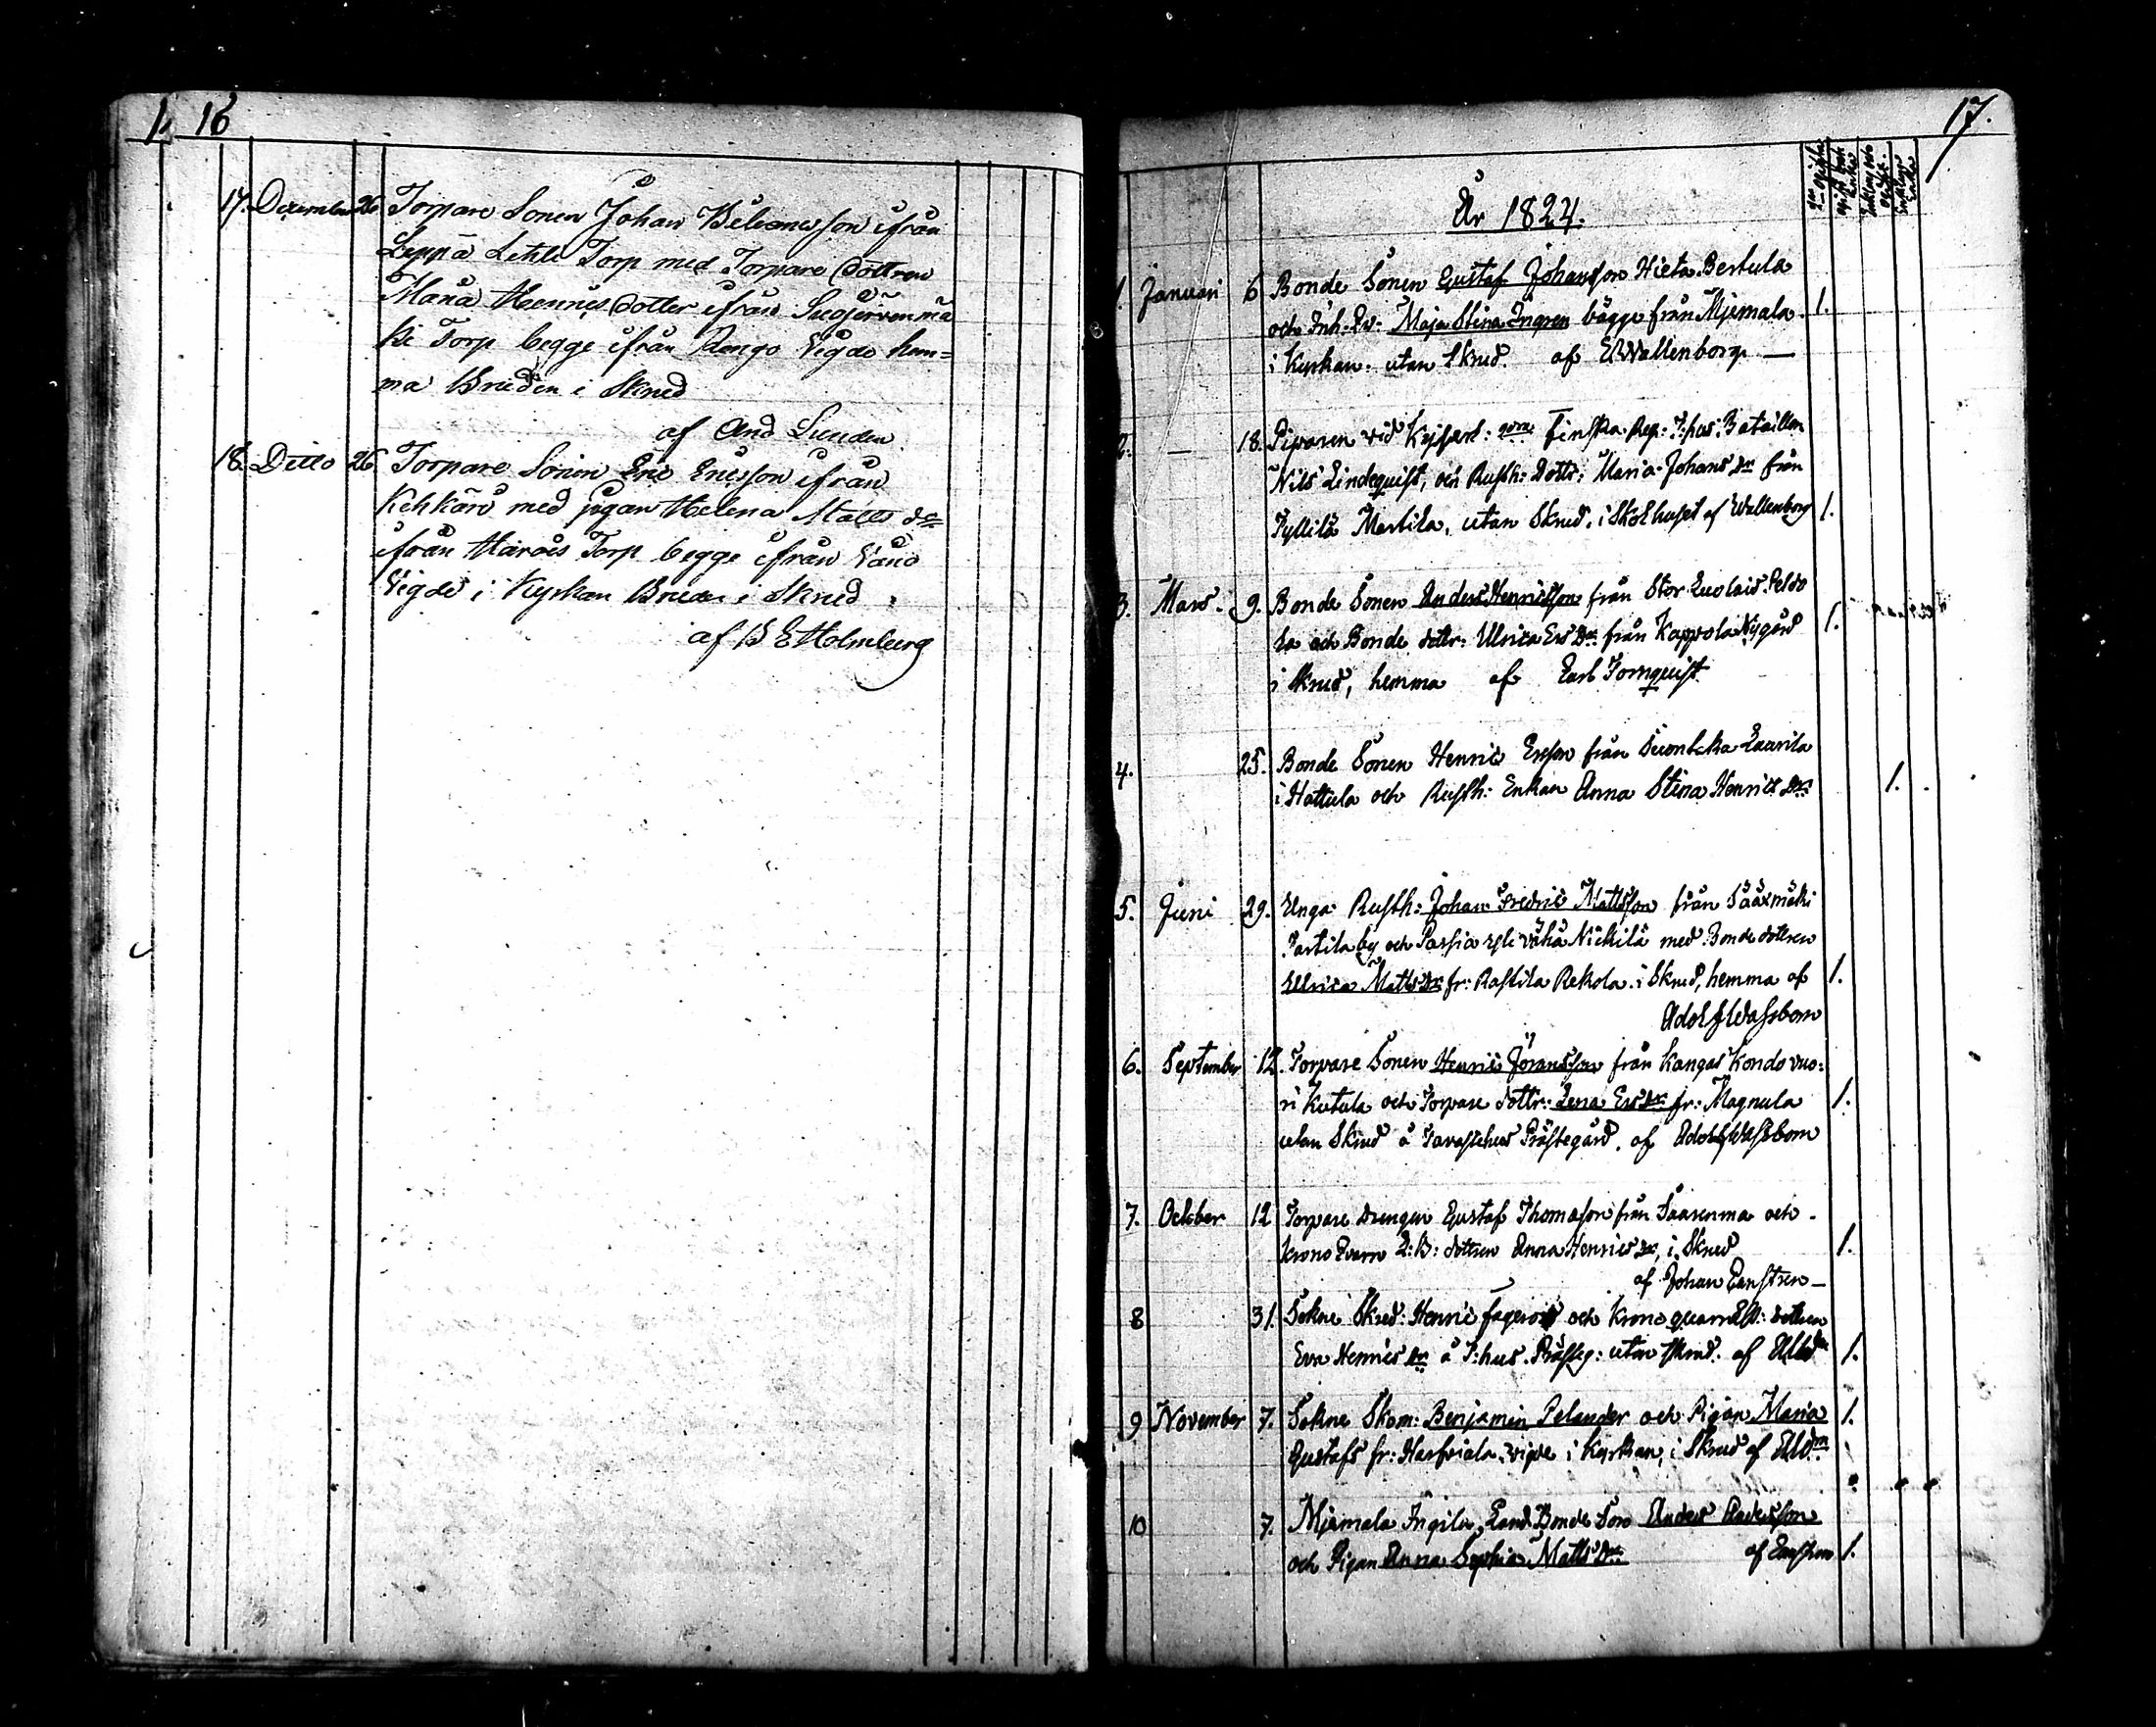 1. 16
17. December 26 Torpare Sonen Johan ifrån
Leppä Lehti Torp med Torpare Dottren
Maria Henrics Dotter ifrån
ki Torp begge ifrån Rengo Vigde hem=
ma Bruden i Skrud
af And Lunden
18. Ditto 26 Torpare Sonen Eric Ericsson ifrån
med pigan Helena Matts dr
ifrån Torp begge ifrån Vånå
Vigde i Kyrkan Bruden i Skrud
af B E Holmberg
17.
År 1824.
1. Januari 6 Bonde Sonen Gustaf Johansson Hieta Bertula
och Inh. Maja Stina Ingren bägge från Mjemala 1.
i Kyrkan utan Skrud. af Wallenborg —
2. — 18. vid Finska T:hus Bataillon
Nils Lindequist, och Rusth: Dottr: Maria Johans Dr från
Pyllilä Martila, utan Skrud, i af Wallenborg 1.
3. Mars. 9. Bonde Sonen Anders Henricsson från Stor Peldo
la och Bonde dottr: Ulrica Ers Dr från Kappola Nygård 1.
i Skrud, hemma af Carl Tornquist
4. 25. Bonde Sonen Henric Ersson från Laurila
i Hattula och Rusth: Enkan Anna Stina Henrics Dr 1.
5. Juni 29. Unga Rusth: Johan Fredric Mattsson från Sääxmäki
by och vähä Nickilä med Bonde dottren
Ulrica Matts Dr fr: Rastila Rekola i Skrud, hemma af 1.
Adolf Wassbom
6. September 12. Torpare Sonen Henric Göransson från Kangas Kondo vuo:
ri Kutula och Torpare dottr: Lena Ers Dr fr: Magnula 1.
utan Skrud å Tavastehus Prästegård. af Adolf Wassbom
7. October 12 Torpare drengen Gustaf Thomasson från Saarenma och
Krono L: B: dottren Anna Henrics Dr, i Skrud 1.
af Johan —
8 31. Sokne Skred: Henric och Krono dottren
Eva Henrics Dr å T:hus Prästeg: utan Skrud. af 1.
9 November 7. Sokne Skom: Benjamin Pelander och Pigan Maria 1.
Gustafs fr: Harfviala, vigde i Kyrkan, i Skrud af
10 7. Mjemala Ingila, Land Bonde Son Anders Andersson
och Pigan Anna Sophia Matts Dr af 1.